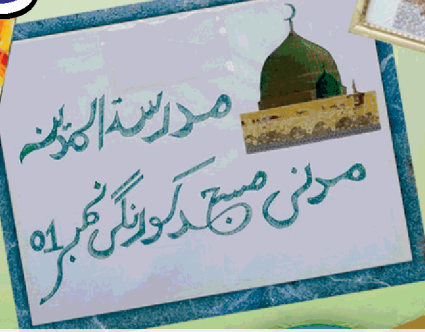 مدرسۃ المدینہ
مدنی مسجد کورنگی نمبر 01